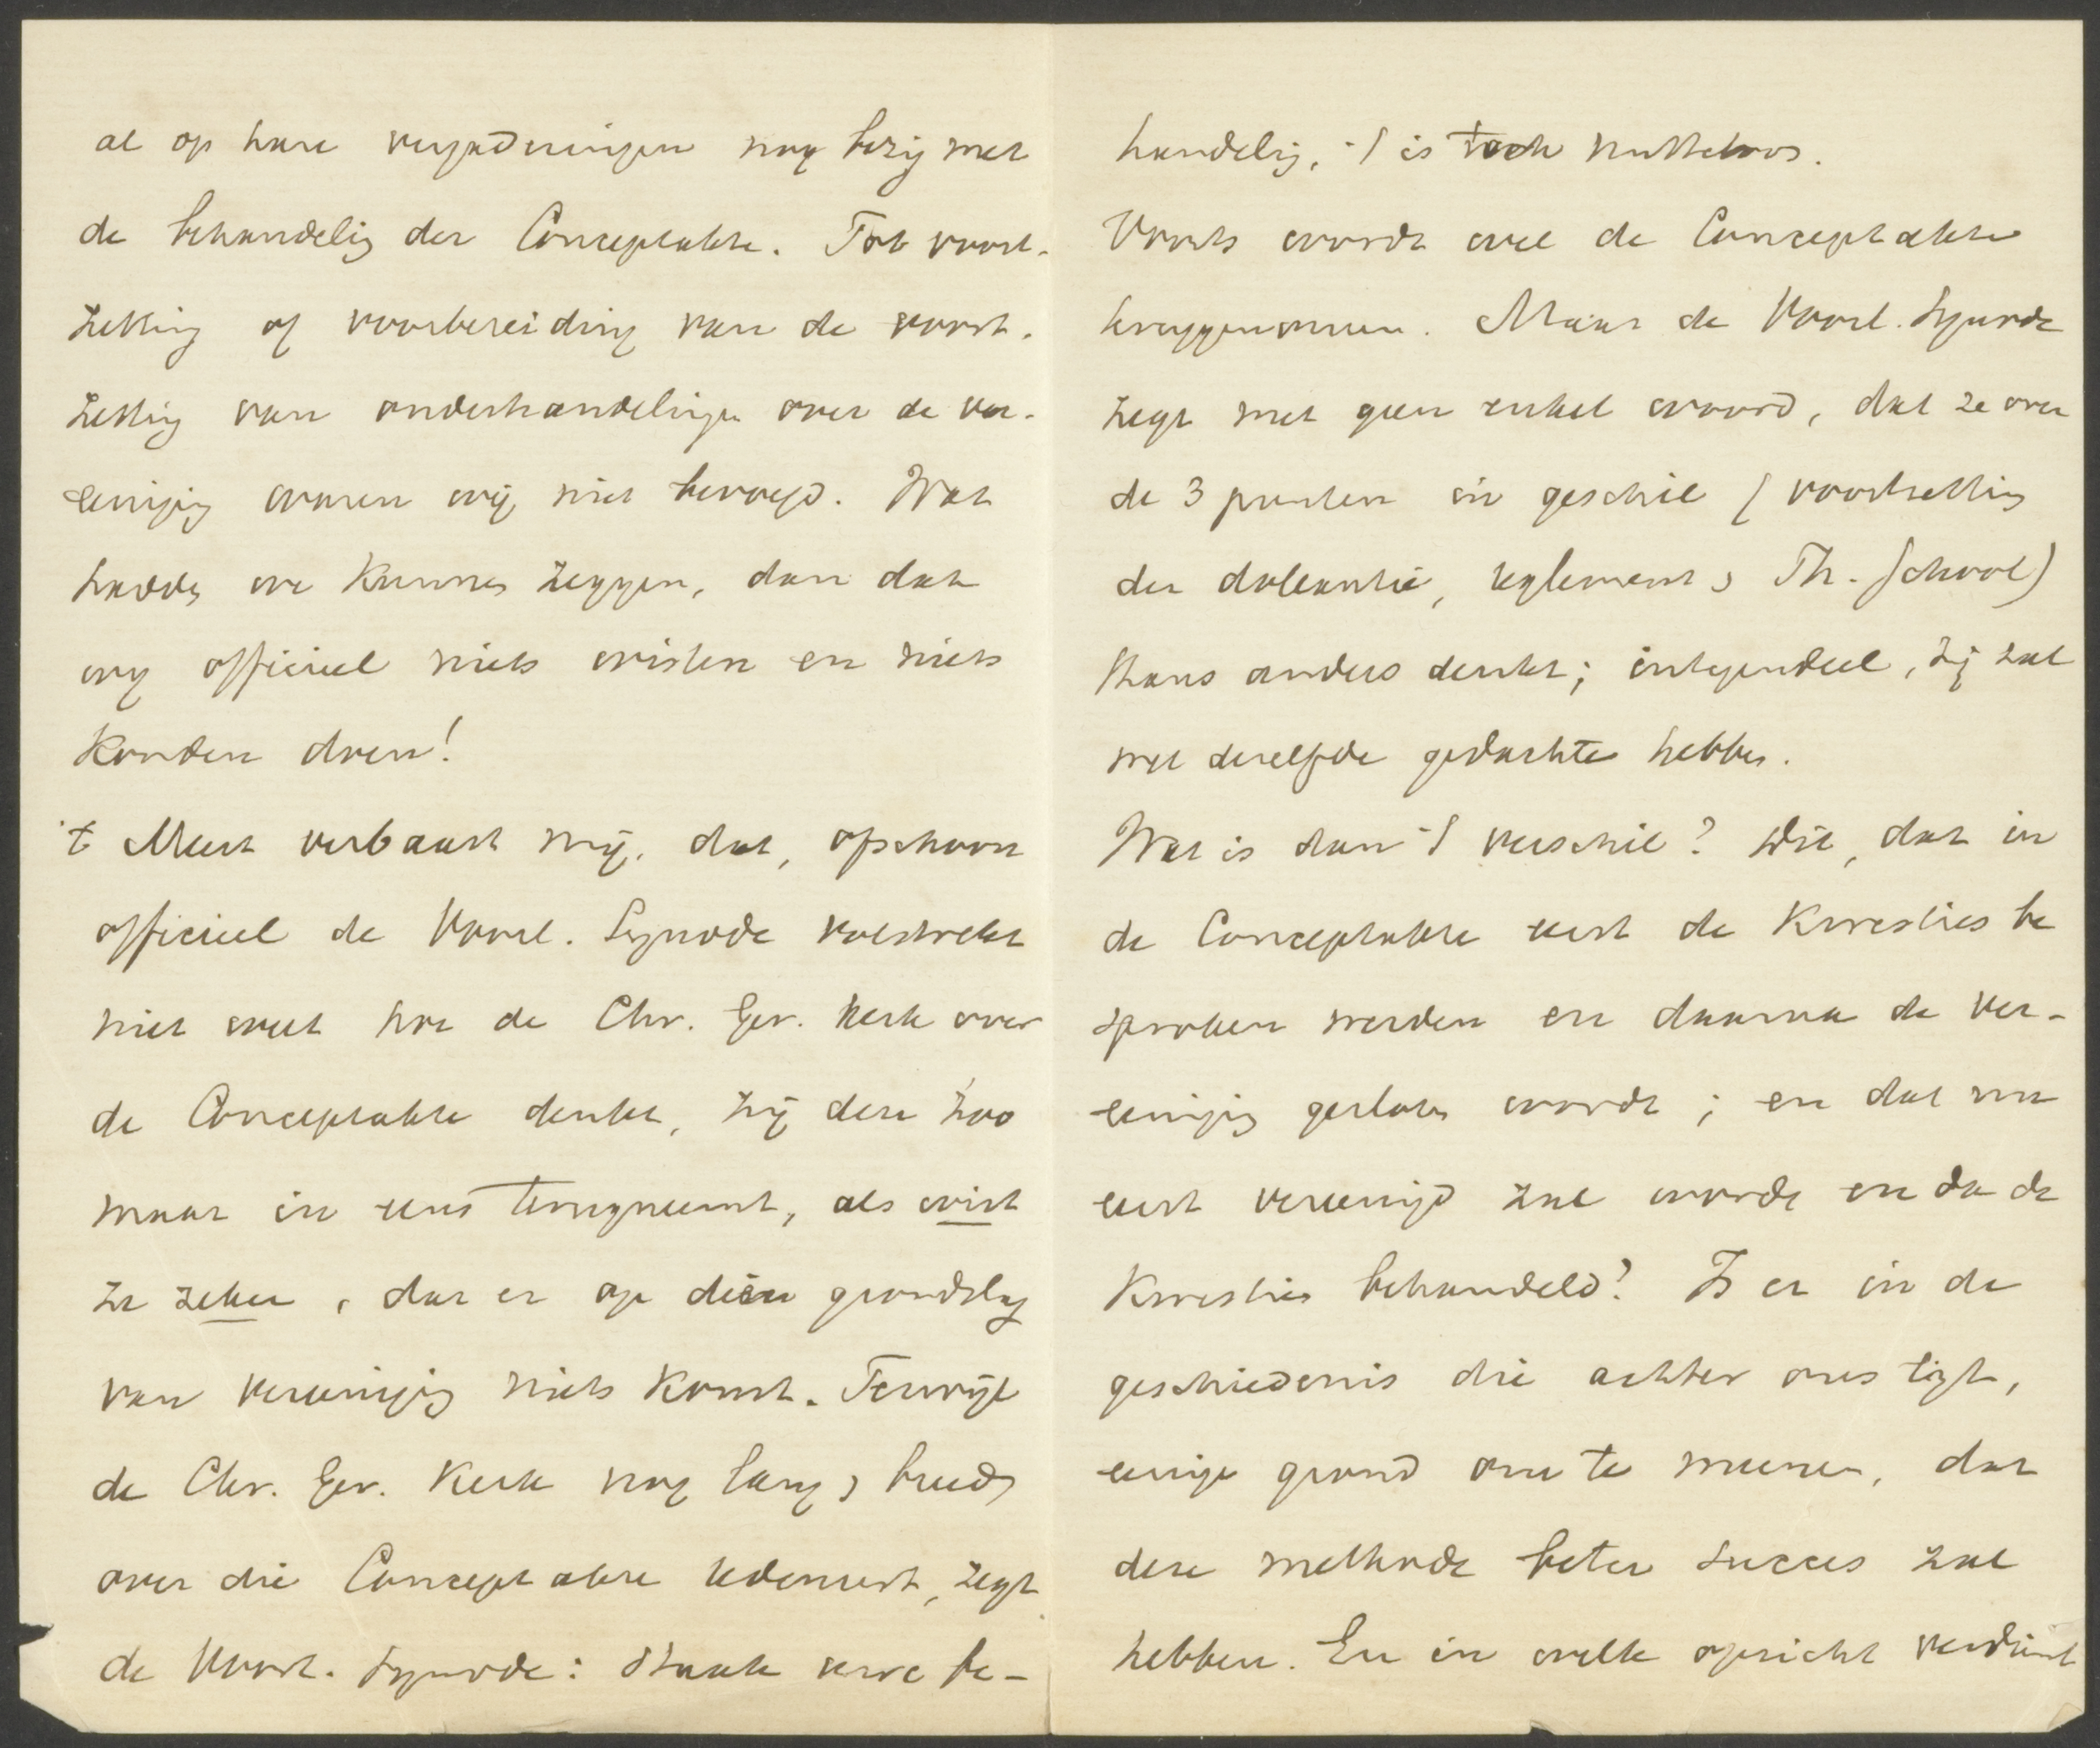 al op hare vergaderingen nog bezig met
de behandelig der Conceptakte. Tot voort-
zetting of voorbereiding van de voort-
zettig van onderhandelingen over de ver-
eenigig waren wij niet bevoegd. Wat
hadde we kunnen zeggen, dan dat
wij officieel niets wisten en niets
konden doen!
't Meest verbaast mij, dat, ofschoon
officieel de Voorl. Synode volstrekt
niet weet hoe de Chr. Ger. Kerk over
de Conceptakte denkt, zij deze zoo
maar in eens terugneemt, als wist
ze zeker, dat er op dien grondslag
van vereenigig niets komt. Terwijl
de Chr. Ger. Kerk nog lang & breed
over die Conceptakte redeneert, zegt
de Voorl. Synode: staak uwe be-
handelig, 't is toch nutteloos.
Voorts wordt wel de Conceptakte
teruggenomen. Maar de Voorl. Synode
zegt met geen enkel woord, dat ze over
de 3 punten in geschil (voortzettig
der doleantie, reglement & Th. School)
thans anders denkt; integendeel, zij zal
wel dezelfde gedachte hebben.
Wat is dan 't verschil? Dit, dat in
de Conceptakte eerst de kwesties be
sproken werden en daarna de ver-
eenigig gesloten wordt; en dat nu
eerst vereenigd zal worde en da de
kwesties behandeld? Is er in de
geschiedenis die achter ons ligt,
eenige grond om te meenen, dat
deze methode beter succes zal
hebben. En in welk opzicht verdient